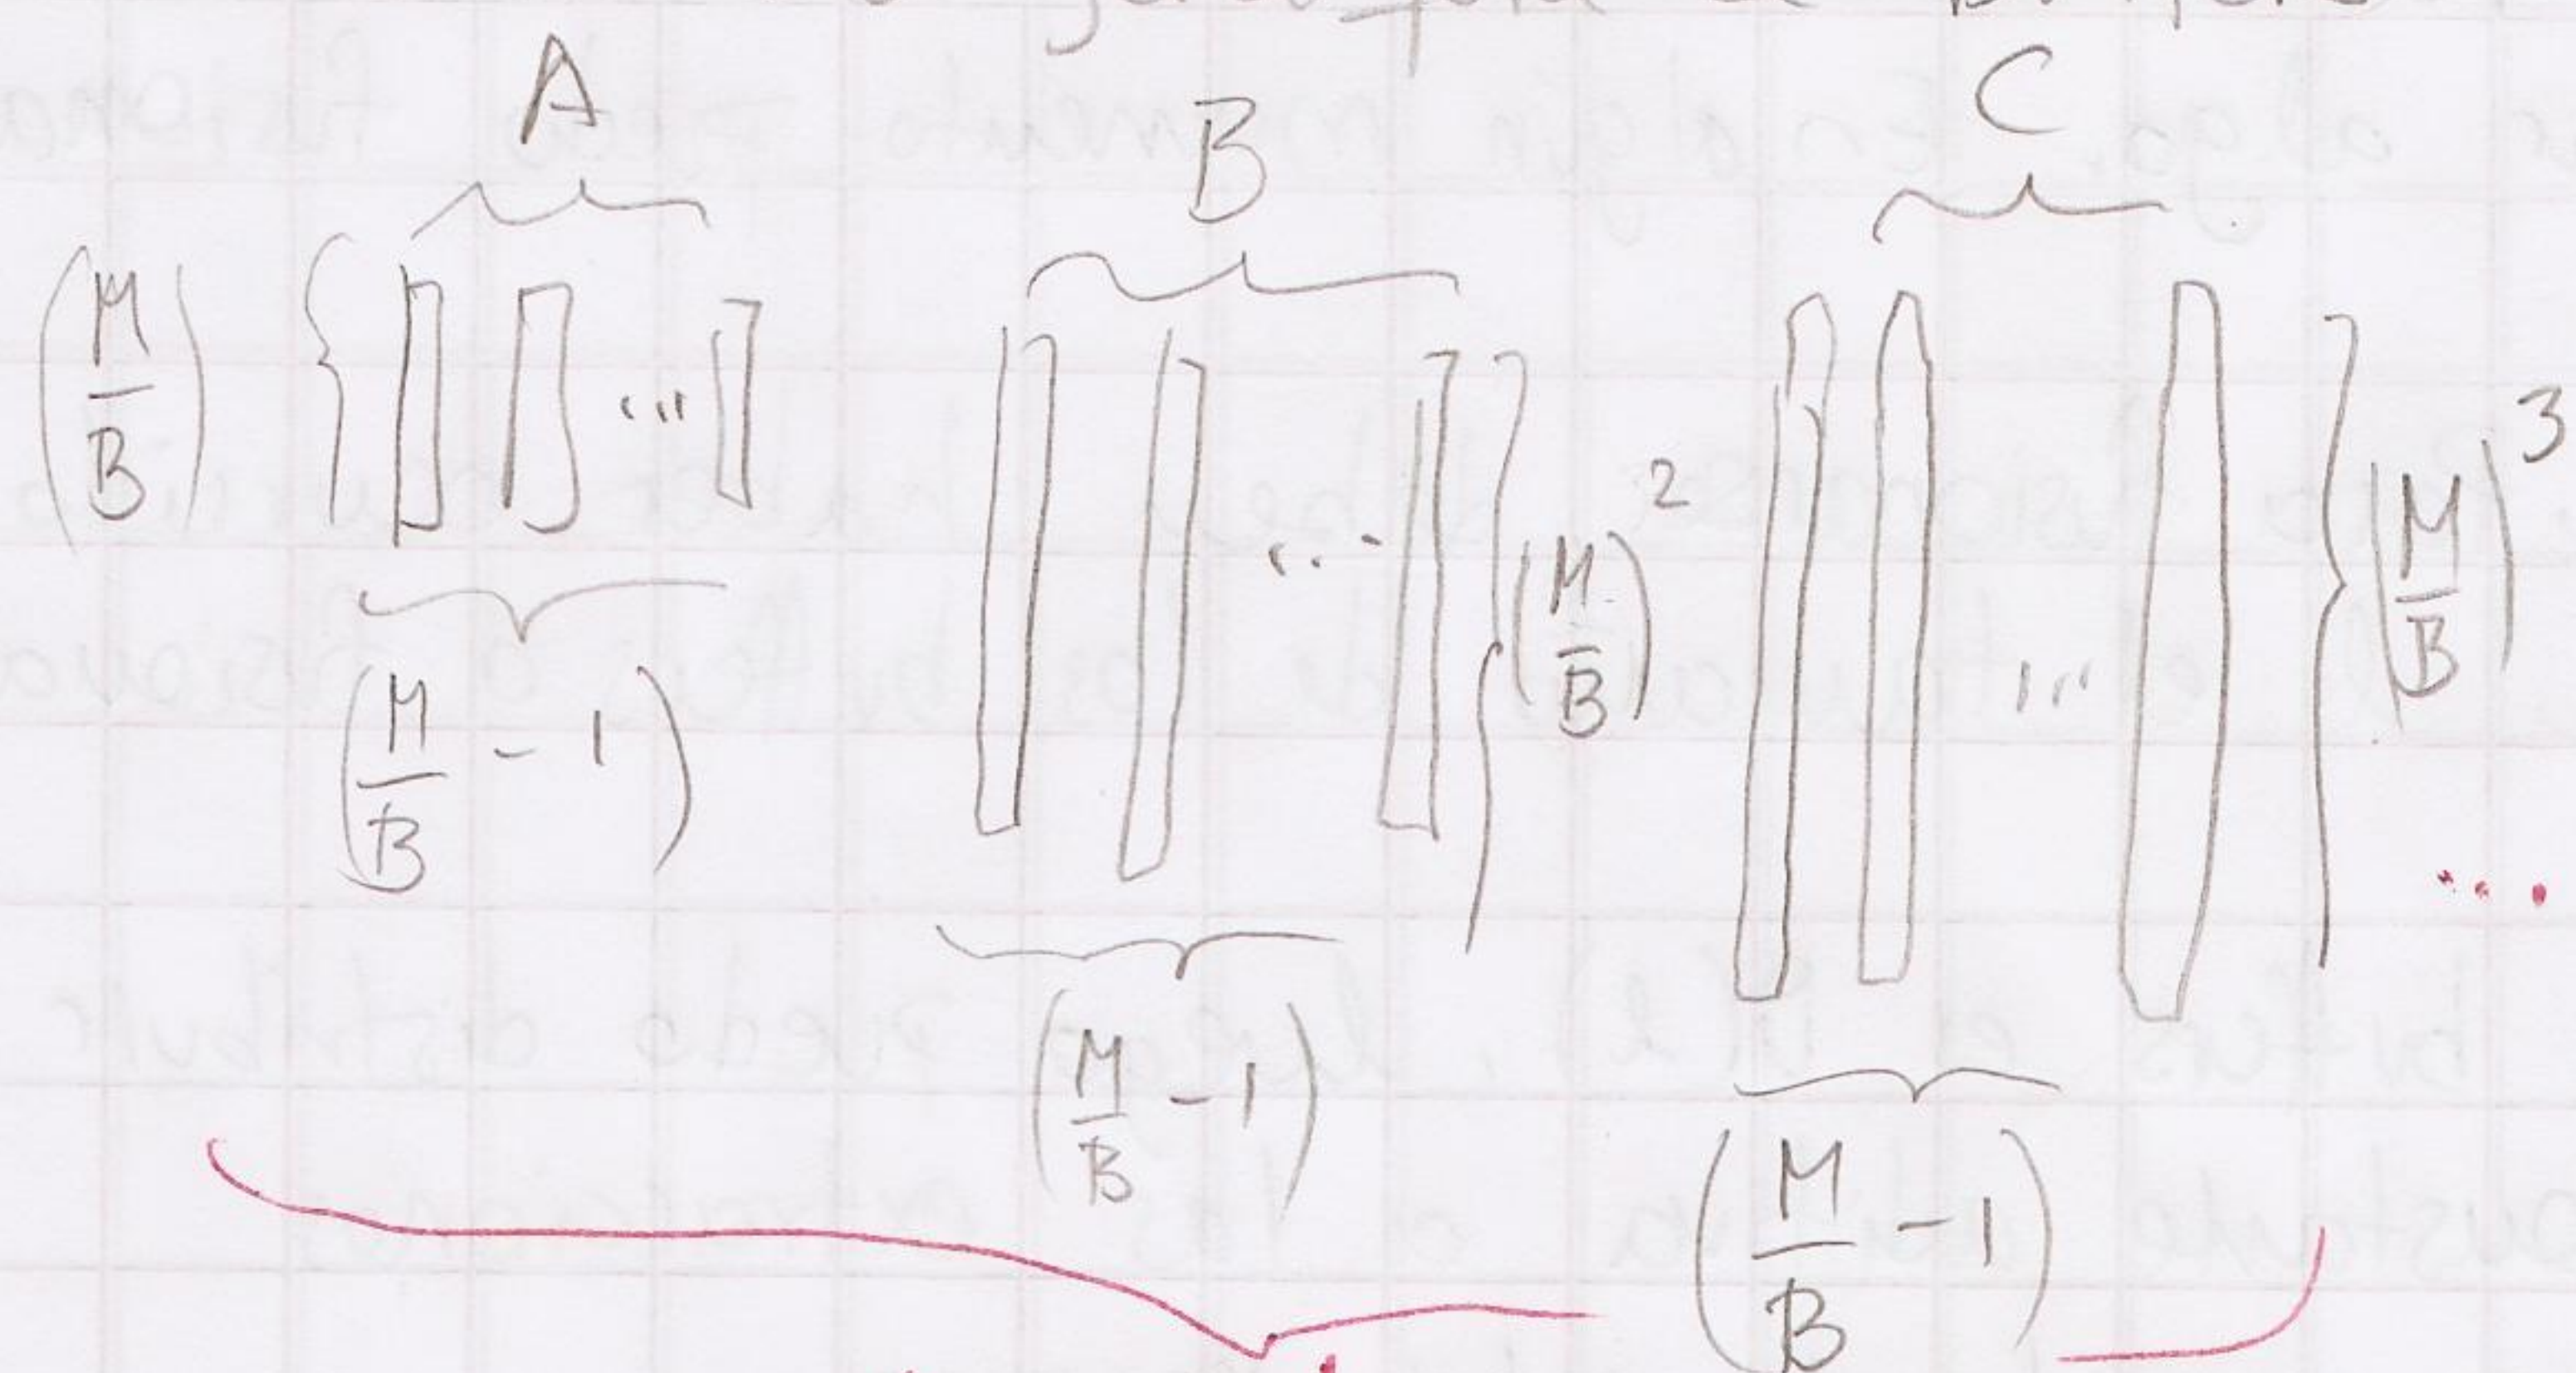 A B C
(M/B) ... ... (M/B)^2 ... (M/B)^3 ...
(M/B - 1) (M/B - 1) (M/B - 1)